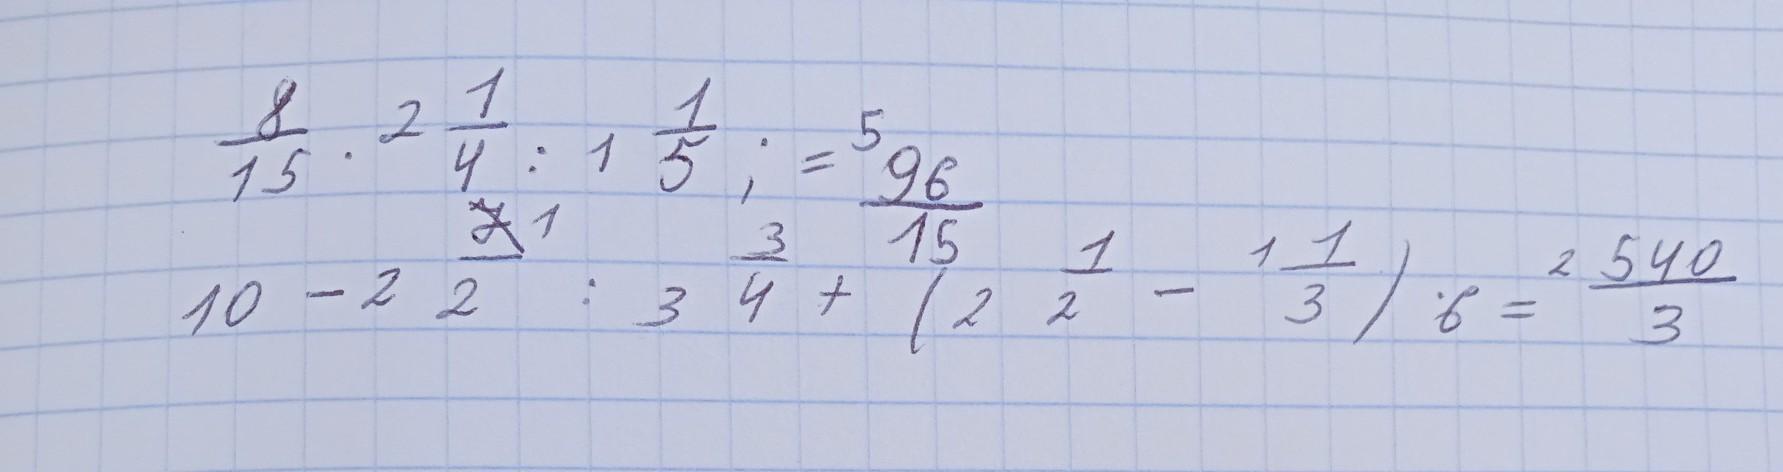 8/15 · 2 1/4 : 1 1/5 ; = 5 96/15
10 - 2 1/2 : 3 3/4 + (2 1/2 - 1 1/3) · 6 = 2 540/3